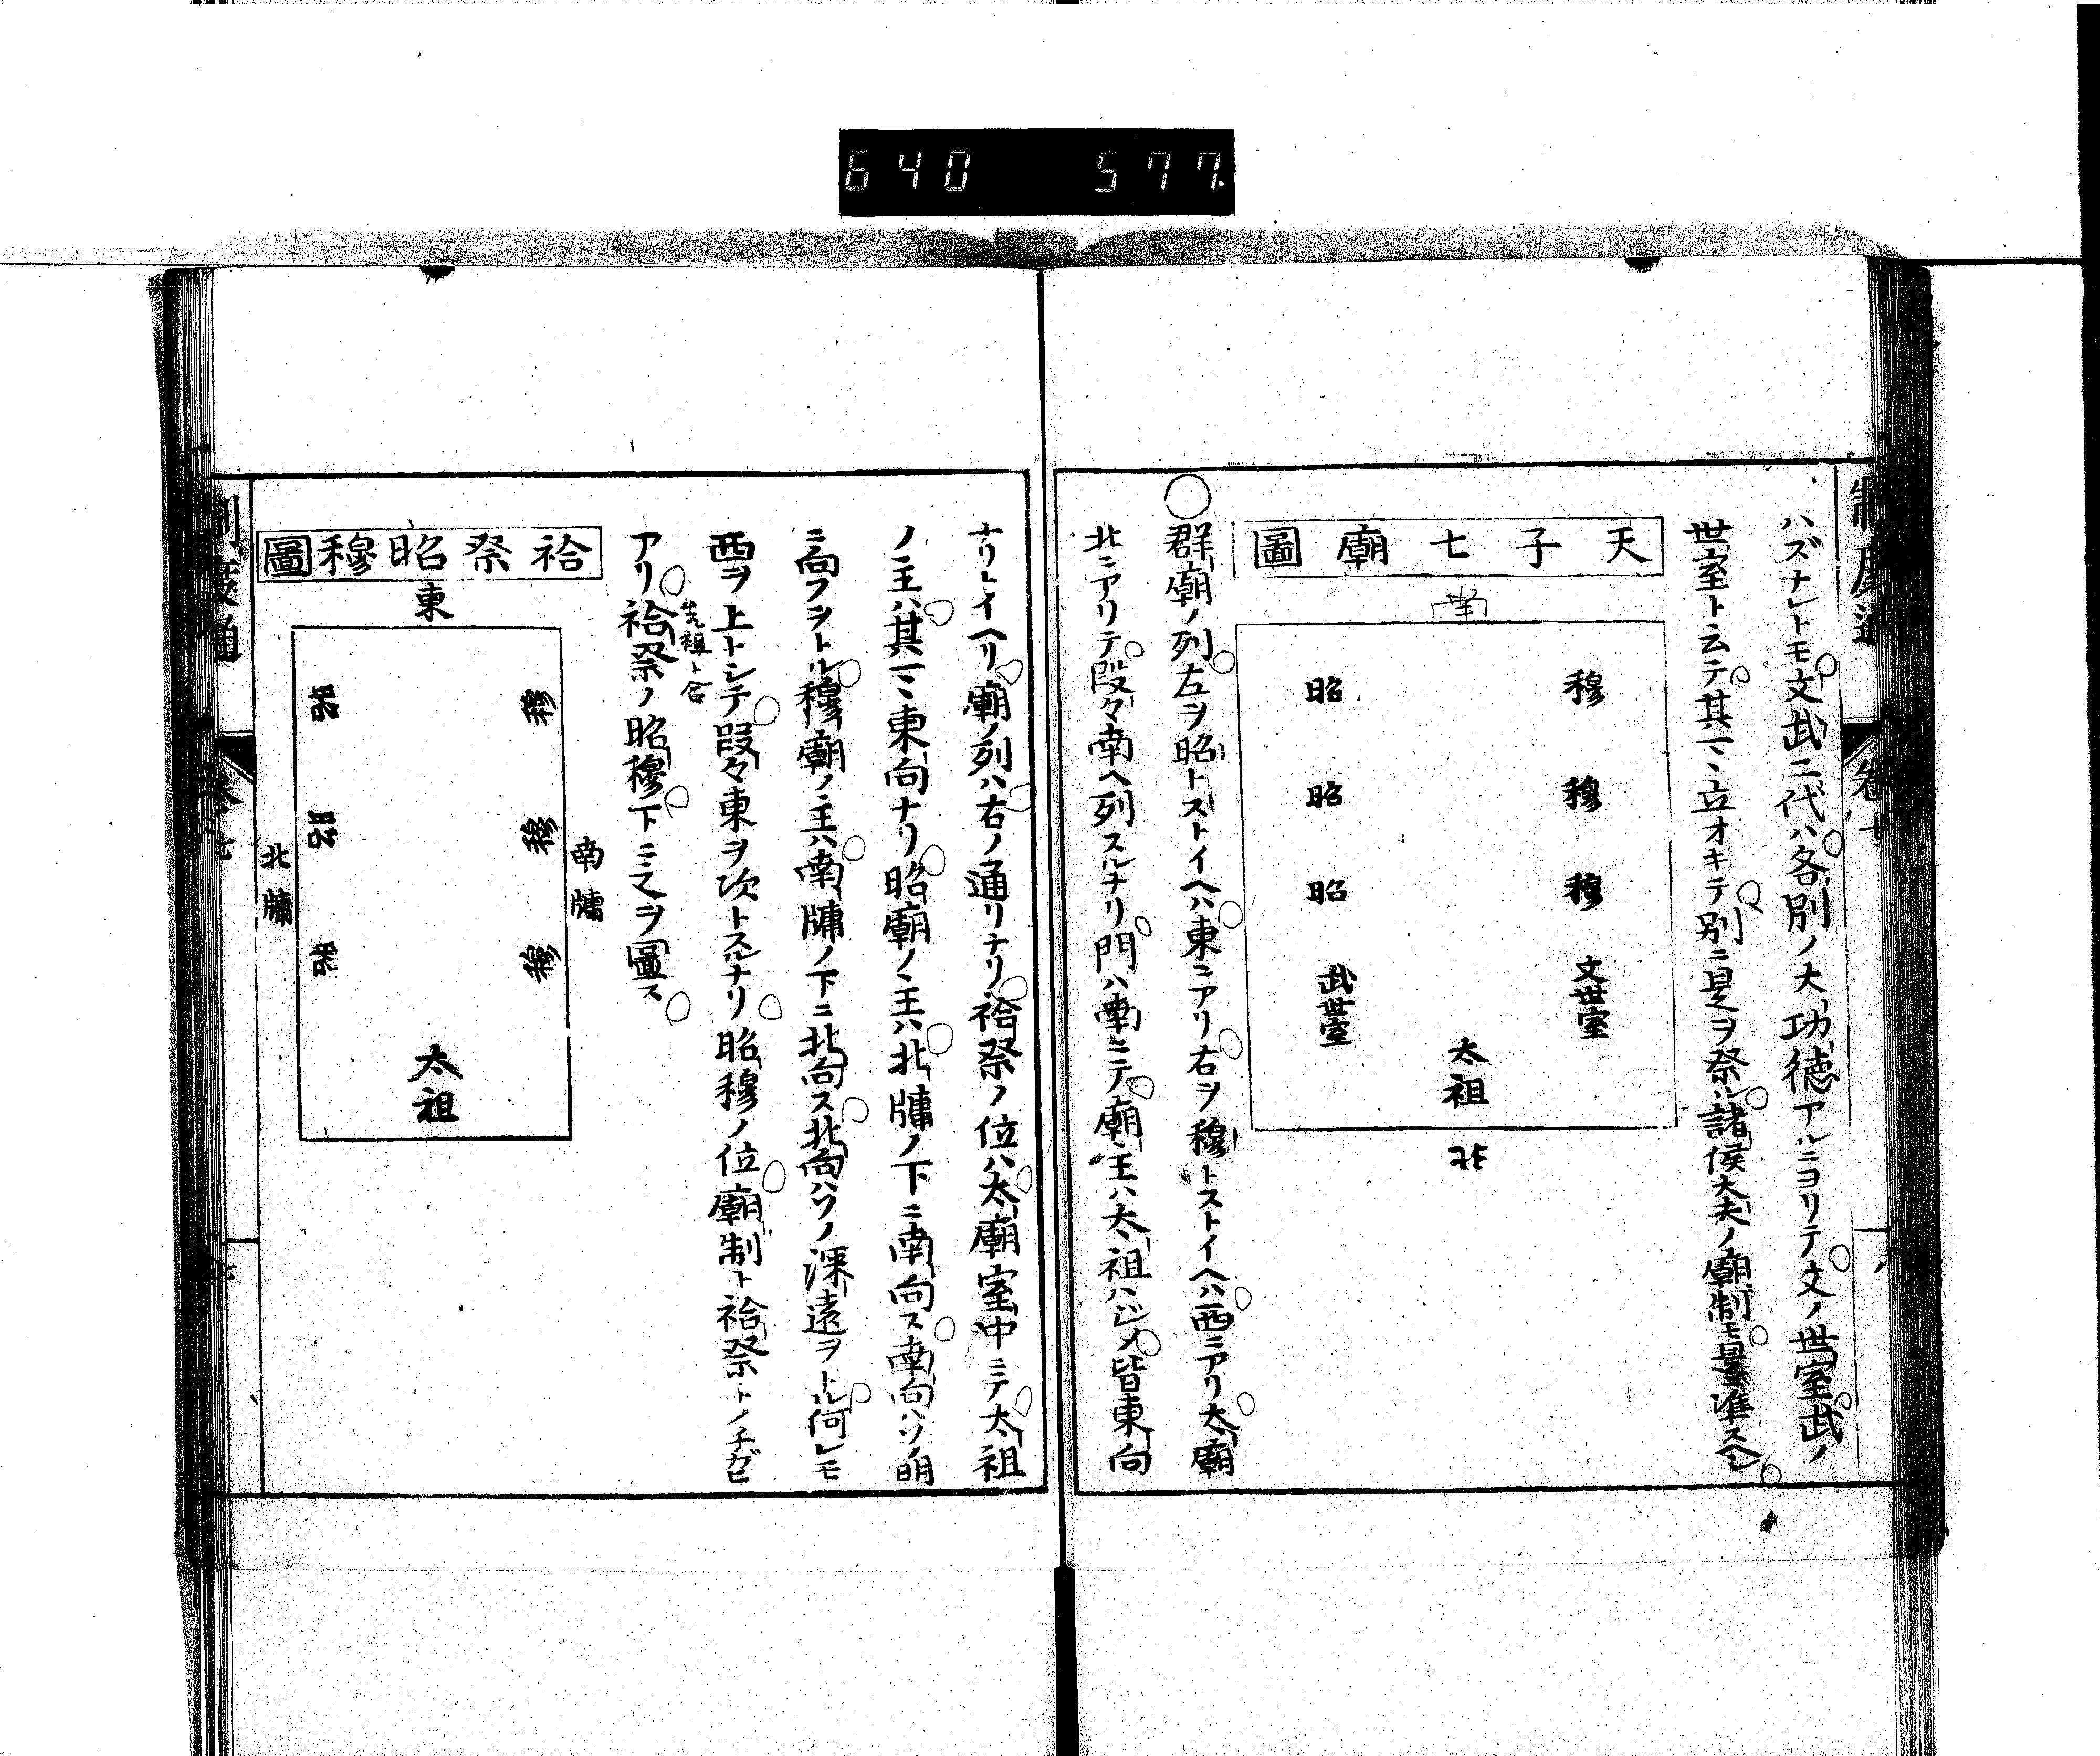 640 577.
制度通
卷七
ハズナレトモ文武二代ハ各別ノ大功徳アルニヨリテ文ノ世室武ノ
世室ト云テ其マヽ立オキテ別ニ是ヲ祭ル諸侯大夫ノ廟制モ是ニ准スヘシ
天子七廟圖
南
穆 昭
穆 昭
穆 昭
文世室 武世室
太祖
北
○群廟ノ列左ヲ昭トストイヘハ東ニアリ右ヲ穆トストイヘハ西ニアリ太廟
北ニアリテ段々南ヘ列スルナリ門ハ南ニテ廟主ハ太祖ハジメ皆東向
ナリトイヘリ廟ノ列ハ右ノ通リナリ祫祭ノ位ハ太廟室中ニテ太祖
ノ主ハ其マヽ東向ナリ昭廟ノ主ハ北牗ノ下ニ南向ス南向ハソノ明
ニ向フヲトル穆廟ノ主ハ南牗ノ下ニ北向ス北向ハソノ深遠ヲトル何レモ
西ヲ上トシテ段々東ヲ次トスルナリ昭穆ノ位廟制ト祫祭トノチガヒ
アリ祫祭ノ昭穆下ニ之ヲ圖ス
先祖ト合
祫祭昭穆圖
東
南牗
穆 昭
穆 昭
穆 昭
太祖
北牗
制度通
卷七
七